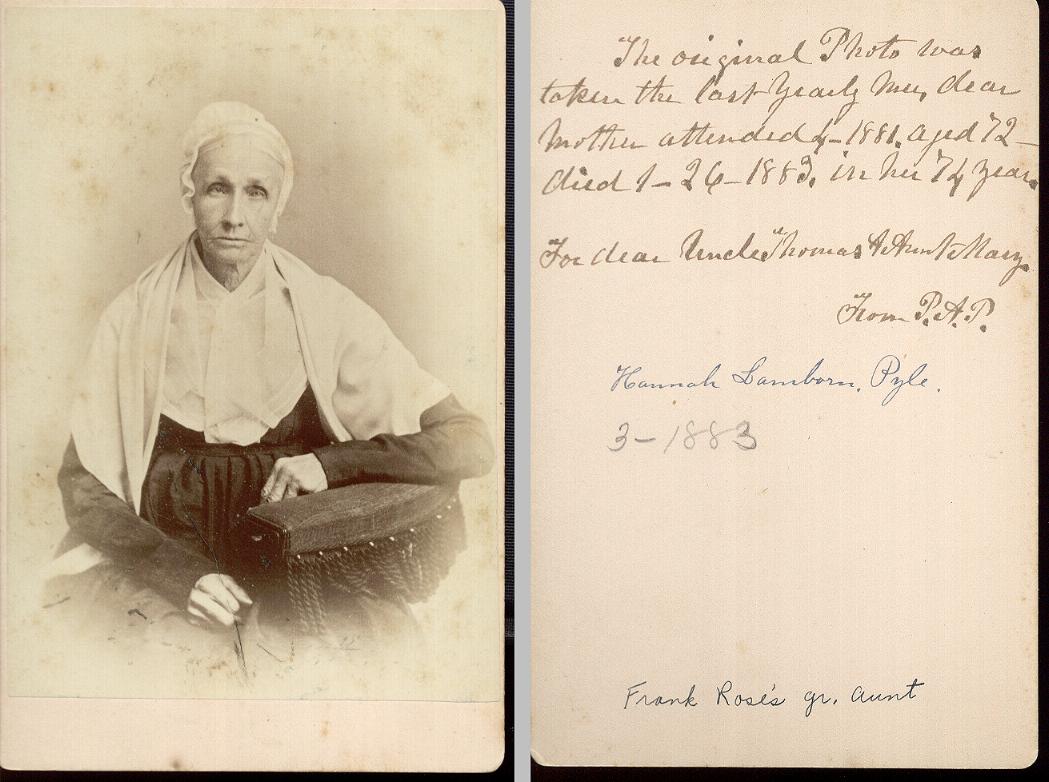 The original Photo was
taken the last Yearly Mee, dear
Mother attended 4-1881, aged 72 -
died 1-26-1883, in her 74 year.
For dear Uncle Thomas & Aunt Mary.
From P.A.P.
Hannah Lamborn, Pyle.
3-1883
Frank Rose's gr. aunt